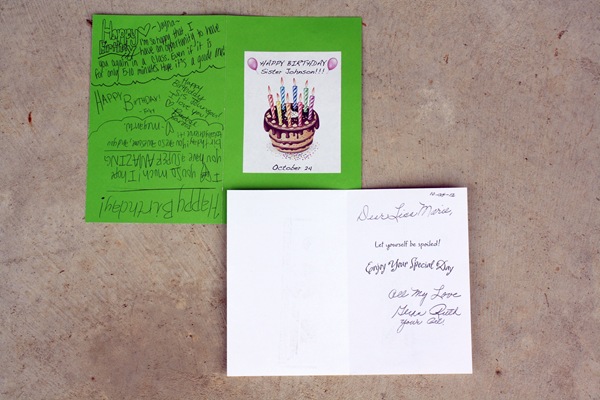 Happy
Birthday
~Jayna~
I'm so happy that I
have an opportunity to have
you again in a class. Even if it is
for only 5-10 minutes. Hope it's a great one!
HAPPY BIRTHDAY!
Happy
Birthday
love you!
Happy Birthday!
I you so much I hope
you have a SUPER AMAZING
birthday! You are so awesome!
HAPPY BIRTHDAY
Sister Johnson!!!
October 24
Dear Lisa Marie,
Let yourself be spoiled!
Enjoy Your Special Day
All My Love
Ruth
Your